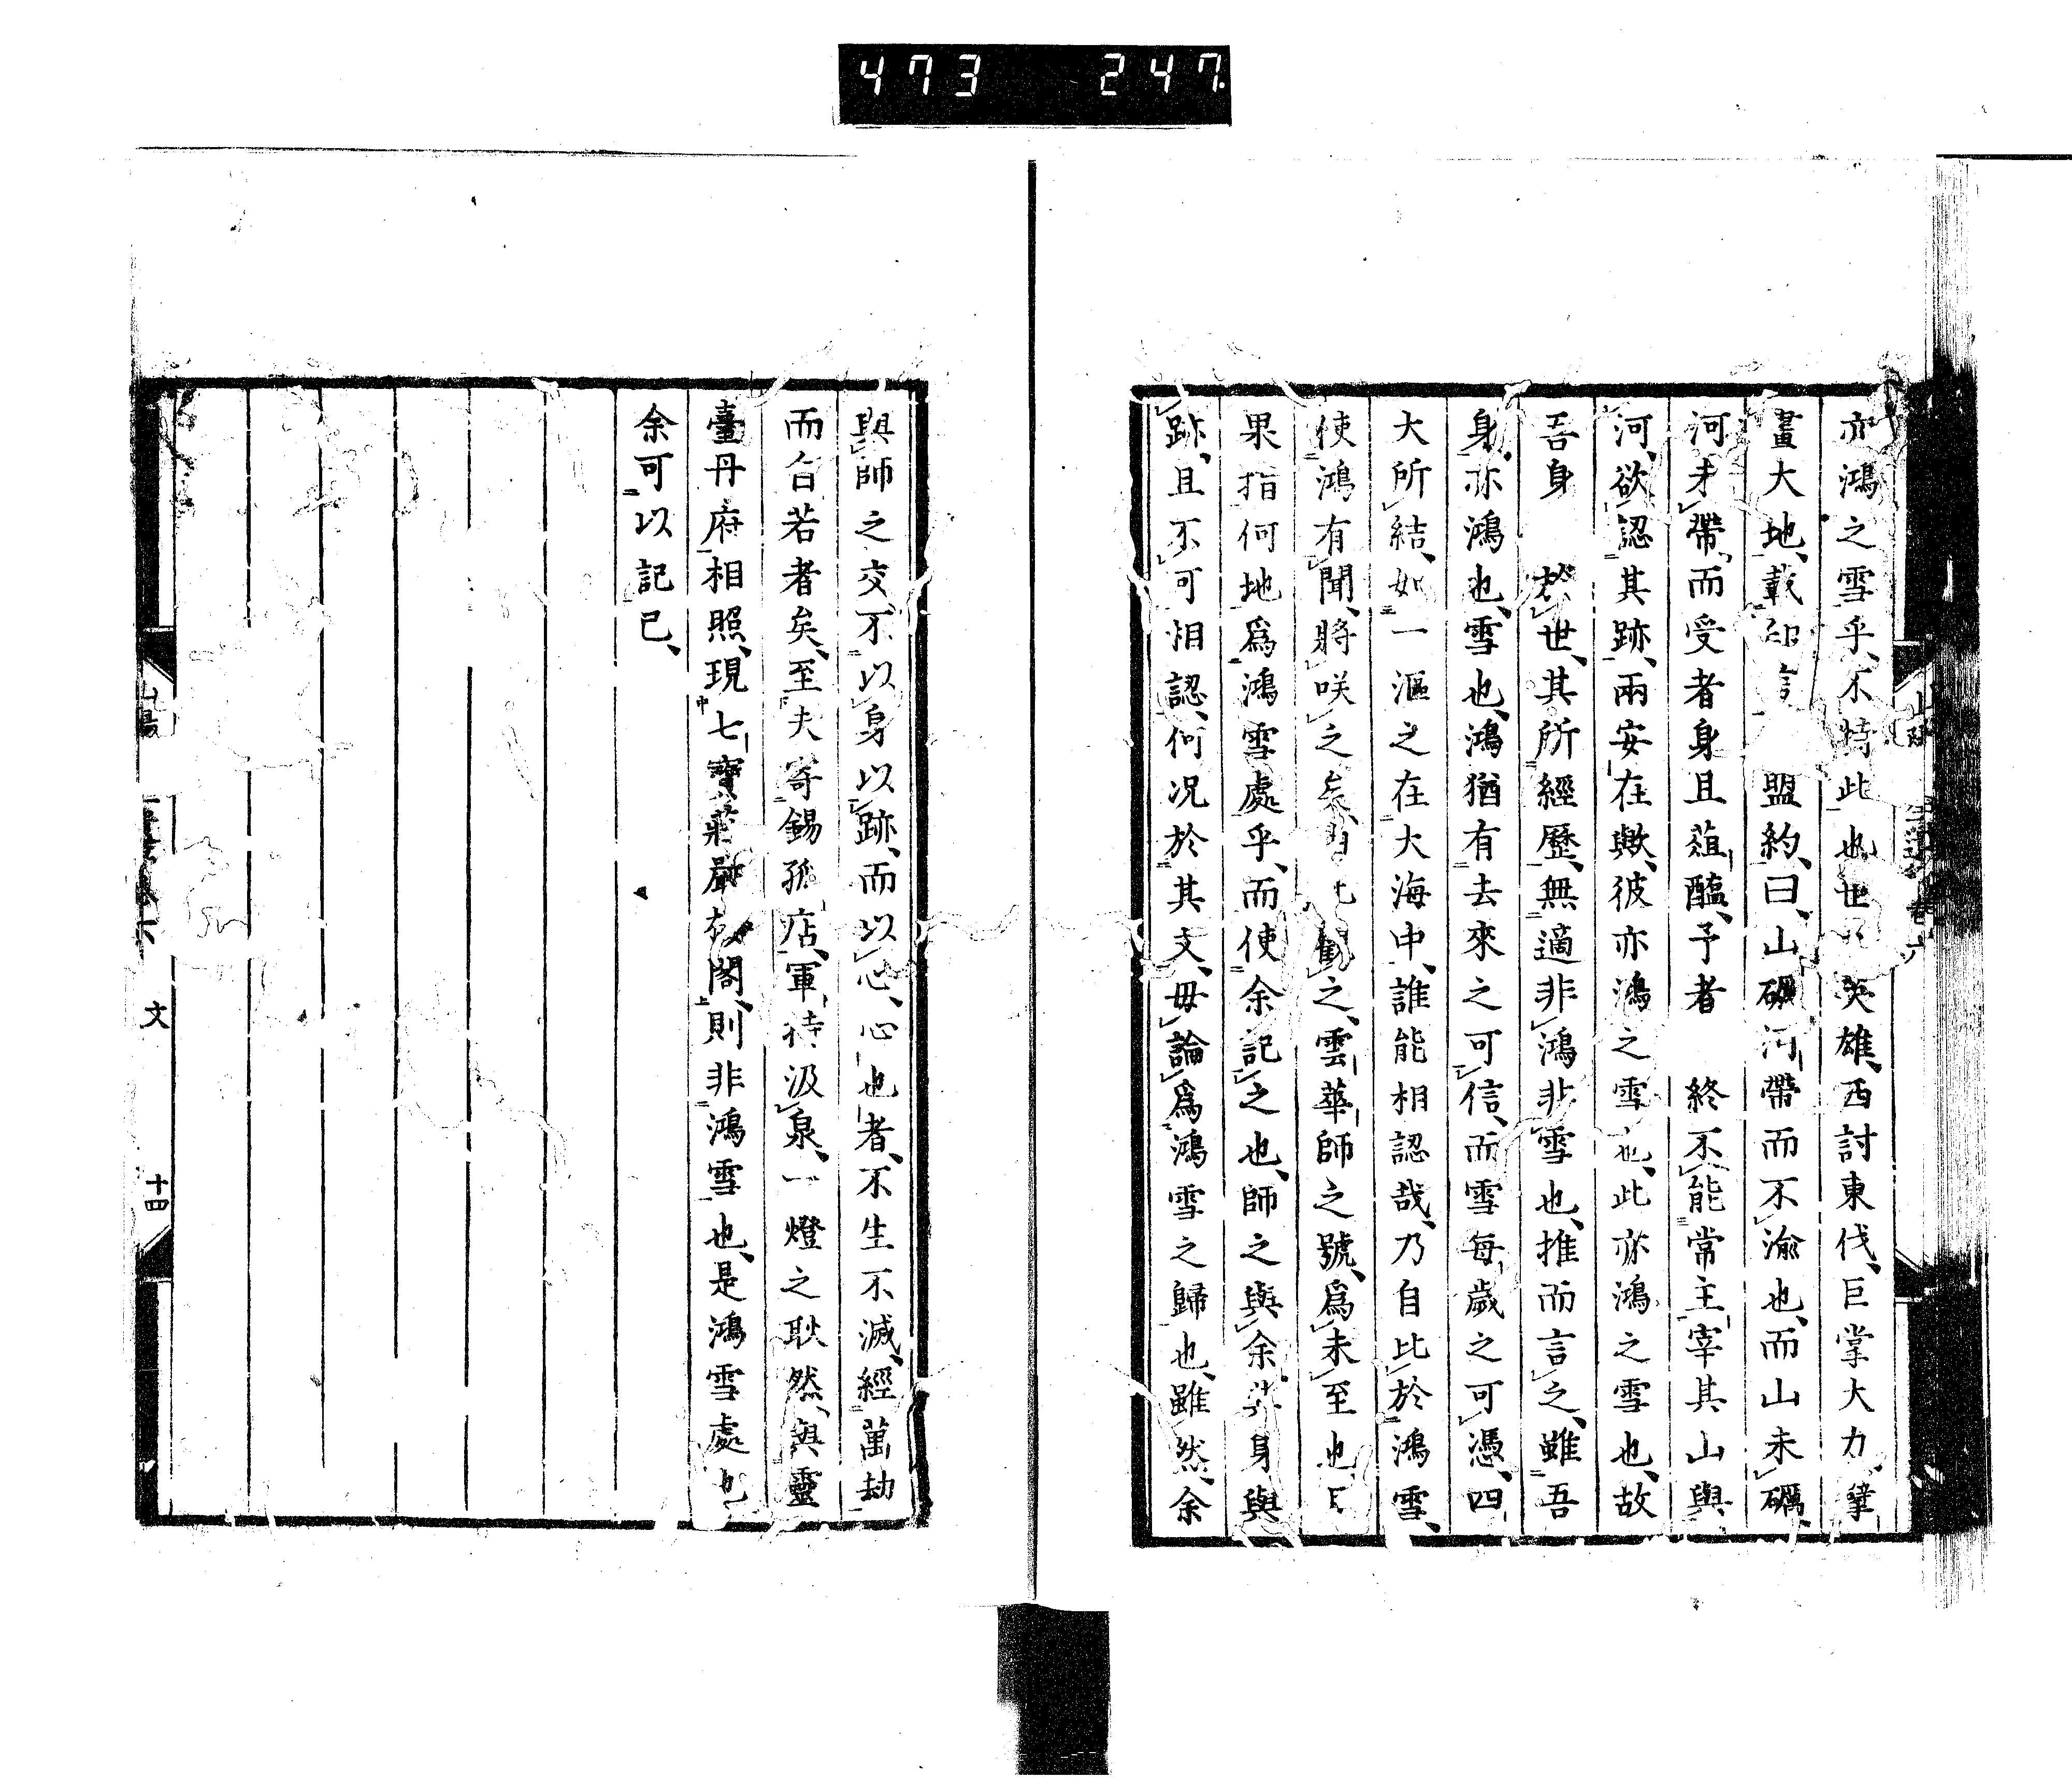 473 247
亦鴻之雪乎、不特此也、世英雄、西討東伐、巨掌大力、擘
畫大地、載盟約、曰、山礪河帶而不渝也、而山未礪、
河未帶、而受者身且葅醢、予者終不能常主宰其山與
河、欲認其跡、兩安在歟、彼亦鴻之雪也、此亦鴻之雪也、故
吾身於世、其所經歷、無適非鴻非雪也、推而言之、雖吾
身、亦鴻也、雪也、鴻猶有去來之可信、而雪每歲之可憑、四
大所結、如一漚之在大海中、誰能相認哉、乃自比於鴻雪、
使鴻有聞、將咲之矣、觀之、雲華師之號、爲未至也
果指何地爲鴻雪處乎、而使余記之也、師之與余、其身與
跡、且不可相認、何况於其文、毋論爲鴻雪之歸也、雖然、余
與師之交、不以身以跡、而以心、心也者、不生不滅、經萬劫
而自若者矣、至夫寄錫孤店、軍持汲泉、一燈之耿然、與靈
臺丹府相照、現七寶莊嚴樓閣、則非鴻雪也、是鴻雪處也
余可以記已、
文
十四